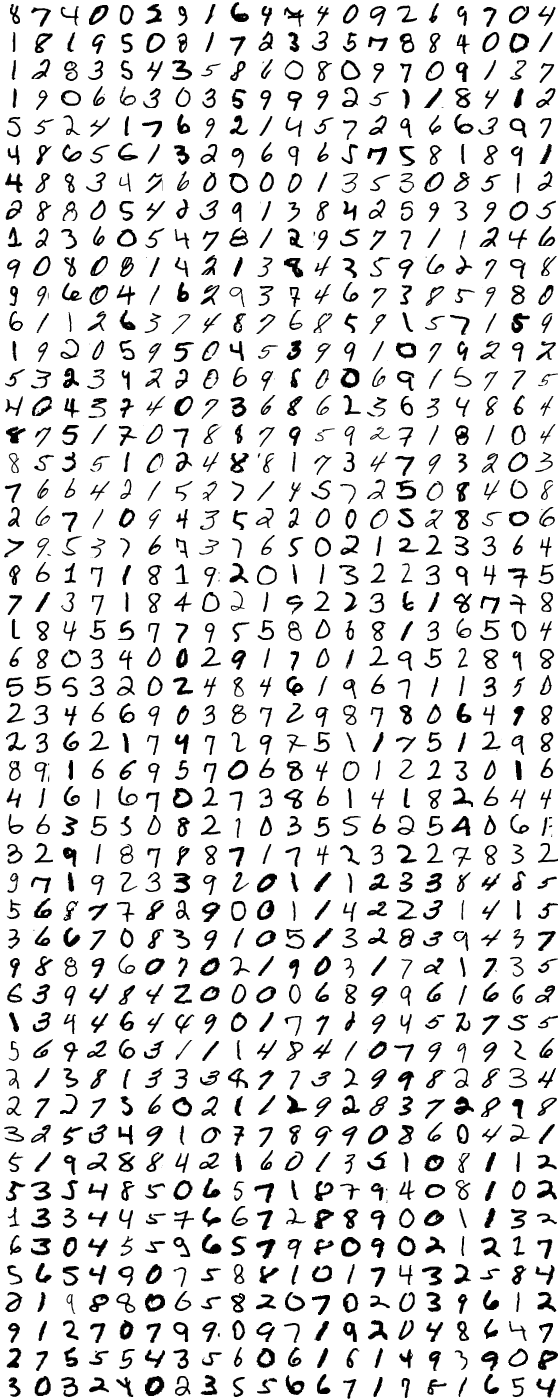 8 7 4 0 0 2 9 1 6 4 4 4 0 9 2 6 9 7 0 4
1 8 1 9 5 0 8 1 7 2 3 3 5 7 8 8 4 0 0 1
1 2 8 3 5 4 3 5 8 6 0 8 0 9 7 0 9 1 3 7
1 9 0 6 6 3 0 3 5 9 9 9 2 5 1 1 8 4 1 2
5 5 2 4 1 7 6 9 2 1 4 5 7 2 9 6 6 3 9 7
4 8 6 5 6 1 3 2 9 6 9 6 5 7 5 8 1 8 9 1
4 8 8 3 4 7 6 0 0 0 0 1 3 5 3 0 8 5 1 2
2 8 8 0 5 4 2 3 9 1 3 8 4 2 5 9 3 9 0 5
1 2 3 6 0 5 4 7 8 1 2 9 5 7 7 1 1 2 4 6
9 0 8 0 8 1 4 2 1 3 8 4 3 5 9 6 2 7 9 8
9 9 6 0 4 1 6 2 9 3 7 4 6 7 3 8 5 9 8 0
6 1 1 2 6 3 7 4 8 7 6 8 5 9 1 5 7 1 5 9
1 9 2 0 5 9 5 0 4 5 3 9 9 1 0 7 9 2 9 2
5 3 2 3 9 2 2 0 6 9 8 0 0 6 9 1 5 7 7 5
4 0 4 3 7 4 0 7 3 6 8 6 2 3 6 3 4 8 6 4
8 7 5 1 7 0 7 8 8 7 9 5 9 2 7 1 8 1 0 4
8 5 3 5 1 0 2 4 8 8 1 7 3 4 7 9 3 2 0 3
7 6 6 4 2 1 5 2 7 1 4 5 7 2 5 0 8 4 0 8
2 6 7 1 0 9 4 3 5 2 2 0 0 0 5 2 8 5 0 6
7 9 5 3 7 6 7 3 7 6 5 0 2 1 2 2 3 3 6 4
8 6 1 7 1 8 1 9 2 0 1 1 3 2 2 3 9 4 7 5
7 1 3 7 1 8 4 0 2 1 5 2 2 3 6 1 8 7 7 8
1 8 4 5 5 7 7 9 5 5 8 0 6 8 1 3 6 5 0 4
6 8 0 3 4 0 0 2 9 1 7 0 1 2 9 5 2 8 9 8
5 5 5 3 2 0 2 4 8 4 6 1 9 6 7 1 1 3 5 0
2 3 4 6 6 9 0 3 8 7 2 9 8 7 8 0 6 4 9 8
2 3 6 2 1 7 4 7 2 9 7 5 1 1 7 5 1 2 9 8
8 9 1 6 6 9 5 7 0 6 8 4 0 1 2 2 3 0 1 6
4 1 6 1 6 7 0 2 7 3 8 6 1 4 1 8 2 6 4 4
6 6 3 5 3 0 8 2 1 0 3 5 5 6 2 5 4 0 6
3 2 9 1 8 7 8 8 7 1 7 4 2 3 2 2 7 8 3 2
9 7 1 9 2 3 3 9 2 0 1 1 1 2 3 3 8 4 8 5
5 6 8 7 7 8 2 9 0 0 1 1 4 2 2 3 1 4 1 5
3 6 6 7 0 8 3 9 1 0 5 1 3 2 8 3 9 4 3 7
9 8 8 9 6 0 7 0 2 1 9 0 3 1 7 2 1 7 3 5
6 3 9 4 8 4 2 0 0 0 0 6 8 9 9 6 1 6 6 2
1 3 4 4 6 4 4 9 0 1 7 7 2 9 4 5 2 7 5 5
5 6 9 2 6 3 1 1 1 4 8 4 1 0 7 9 9 9 2 6
2 1 3 8 1 3 3 3 4 7 7 3 2 9 9 8 2 8 3 4
2 7 2 7 3 6 0 2 1 1 2 9 2 8 3 7 2 8 9 8
3 2 5 3 4 9 1 0 7 7 8 9 9 0 8 6 0 4 2 1
5 1 9 2 8 8 4 2 1 6 0 1 3 5 1 0 8 1 1 2
5 3 5 4 8 5 0 6 5 7 1 8 7 9 4 0 8 1 0 2
1 3 3 4 4 5 7 6 6 7 2 8 8 9 0 0 1 1 3 2
6 3 0 4 5 5 9 6 5 7 9 8 0 9 0 2 1 2 1 7
5 6 5 4 9 0 7 5 8 8 1 0 1 7 4 3 2 5 8 4
2 1 9 8 8 0 6 5 8 2 0 7 0 2 0 3 9 6 1 2
9 1 2 7 0 7 9 9 0 9 7 1 9 2 0 4 8 6 4 7
2 7 5 5 5 4 3 5 6 0 6 1 6 1 4 9 3 9 0 8
3 0 3 2 4 0 2 3 5 5 6 6 7 1 7 5 1 6 5 4